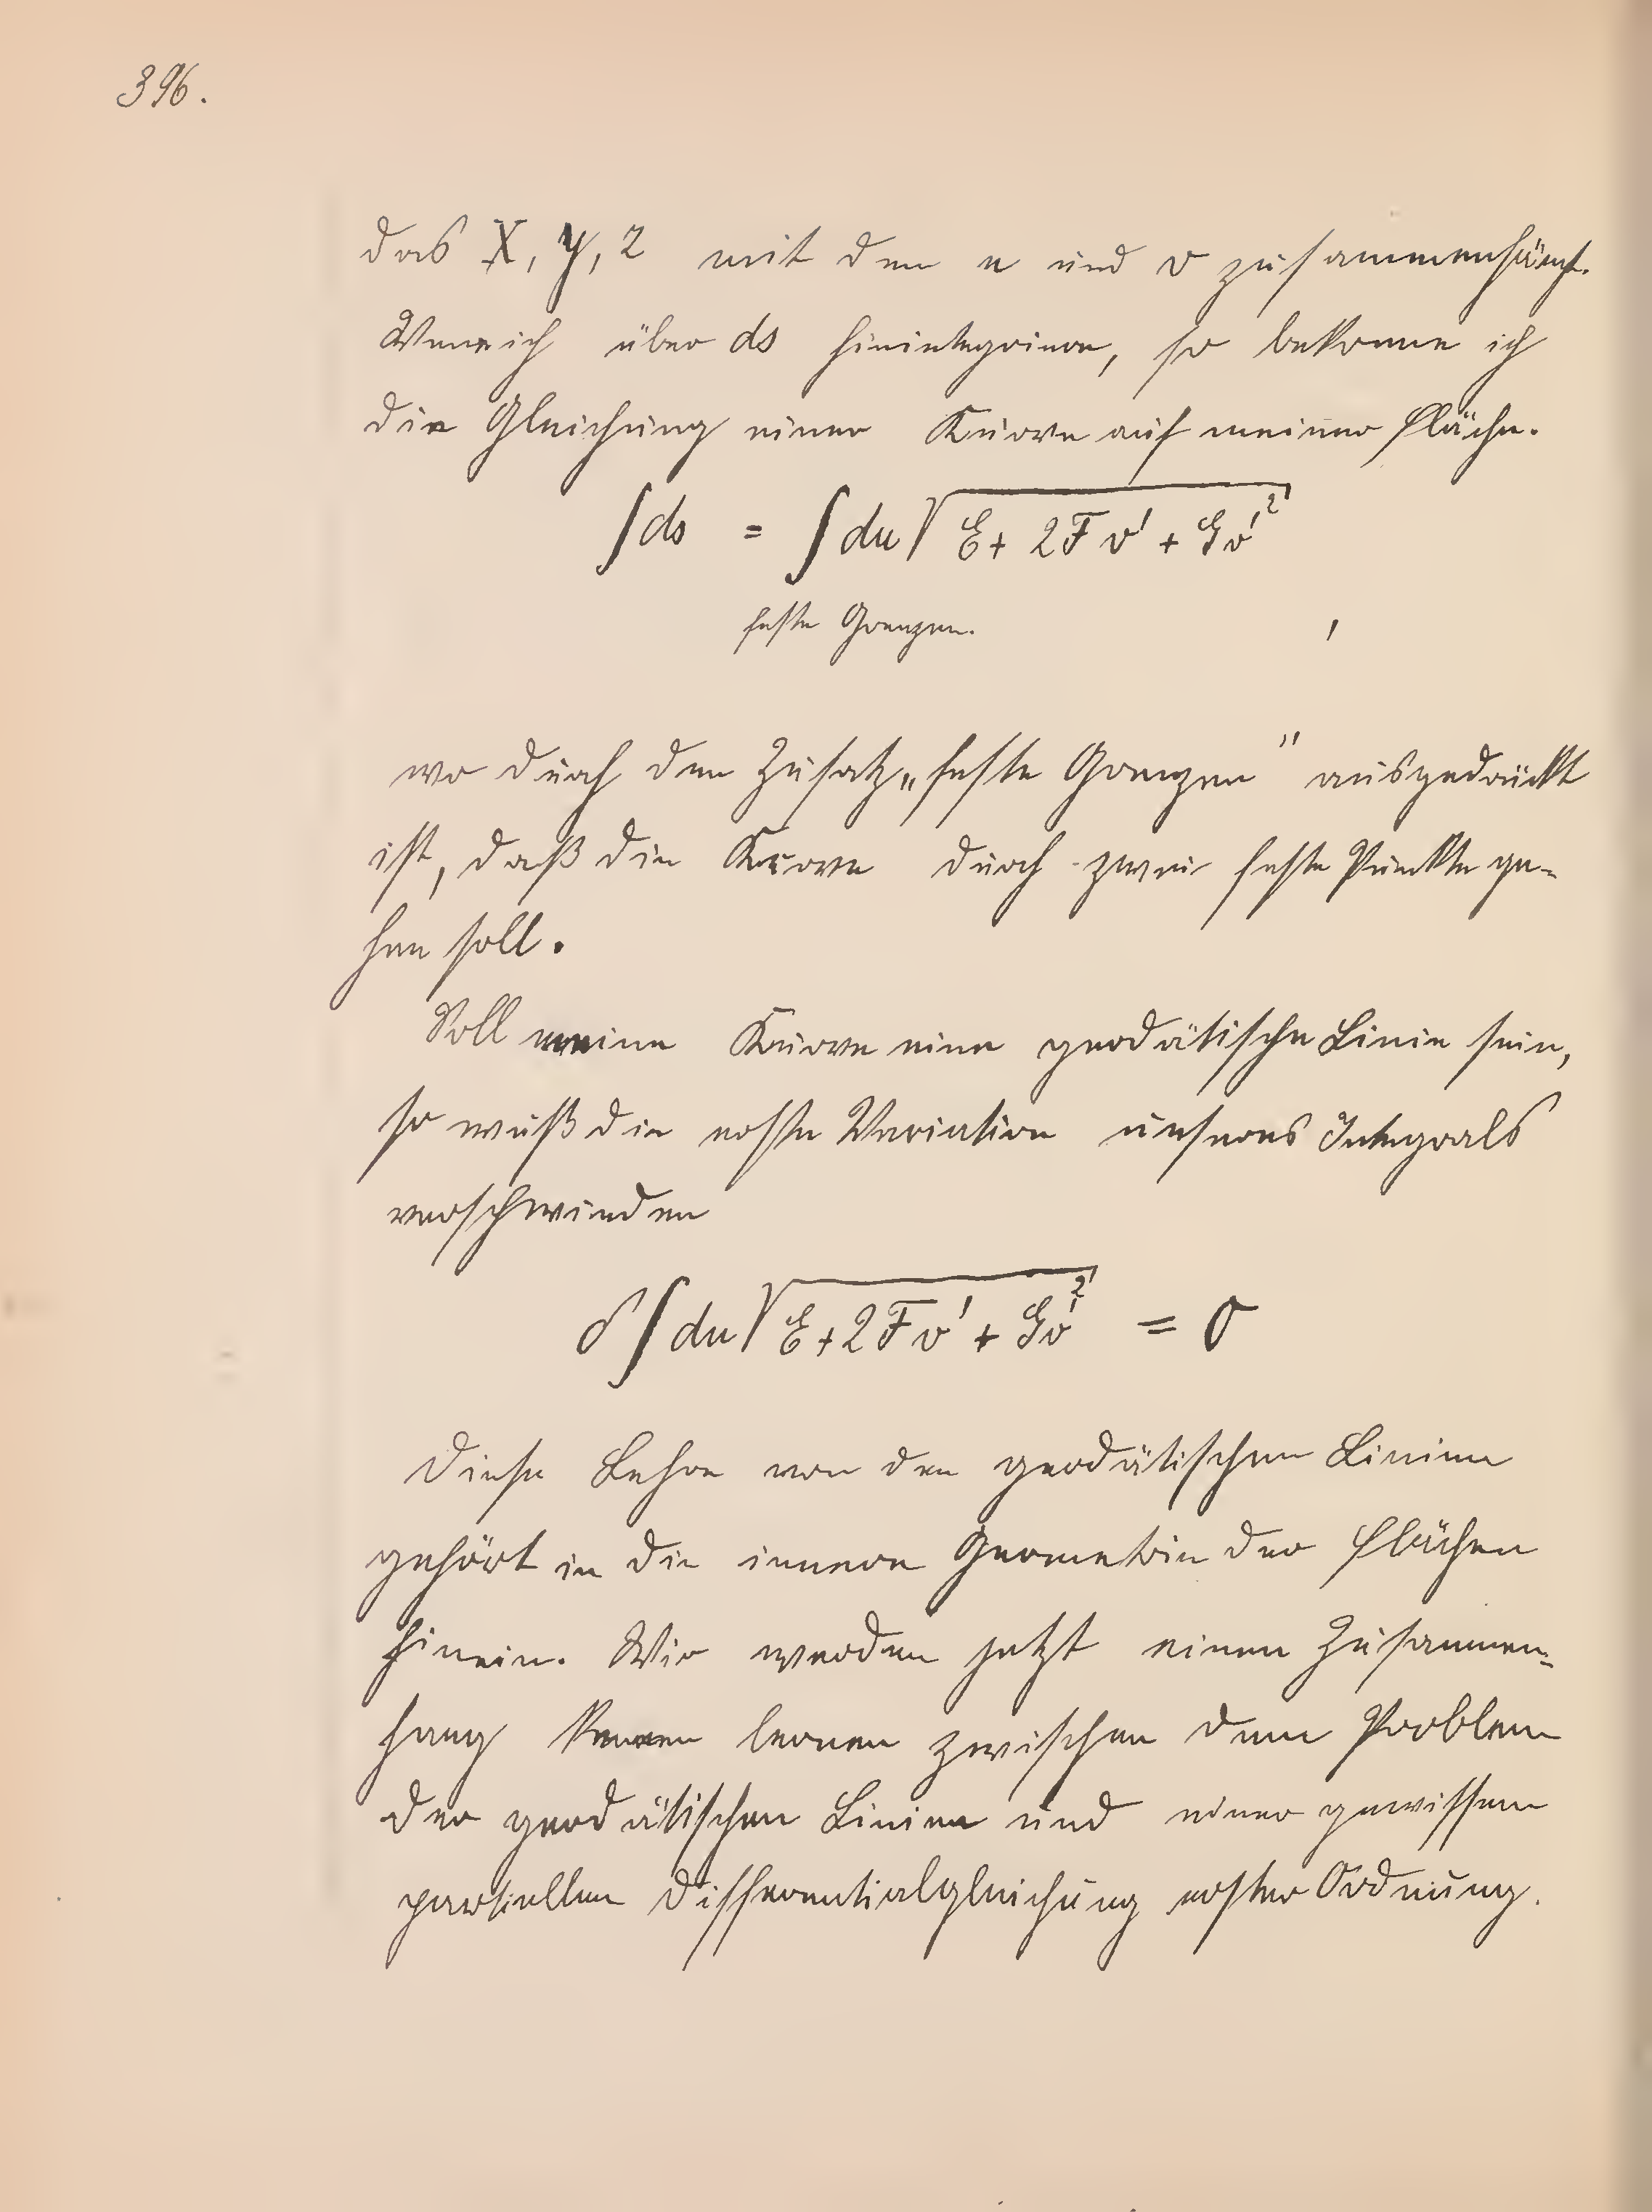 396.
das X, Y, Z mit dem u und v zusammenhängt.
Wenn ich über ds hinintegriere, so bekomme ich
die Gleichung einer Kurve auf meiner Fläche.
∫ds = ∫du√(E + 2Fv' + Gv'²)
feste Grenzen.
wo durch den Zusatz „feste Grenzen" ausgedrückt
ist, daß die Kurve durch zwei feste Punkte ge-
hen soll.
Soll meine Kurve eine geodätische Linie sein,
so muß die erste Variation unseres Integrals
verschwinden
δ∫du√(E + 2Fv' + Gv'²) = 0
Diese Lehre von den geodätischen Linien
gehört in die innere Geometrie der Flächen
hinein. Wir werden jetzt einen Zusammen-
hang kennen lernen zwischen dem Problem
der geodätischen Linien und einer gewissen
partiellen Differentialgleichung erster Ordnung.